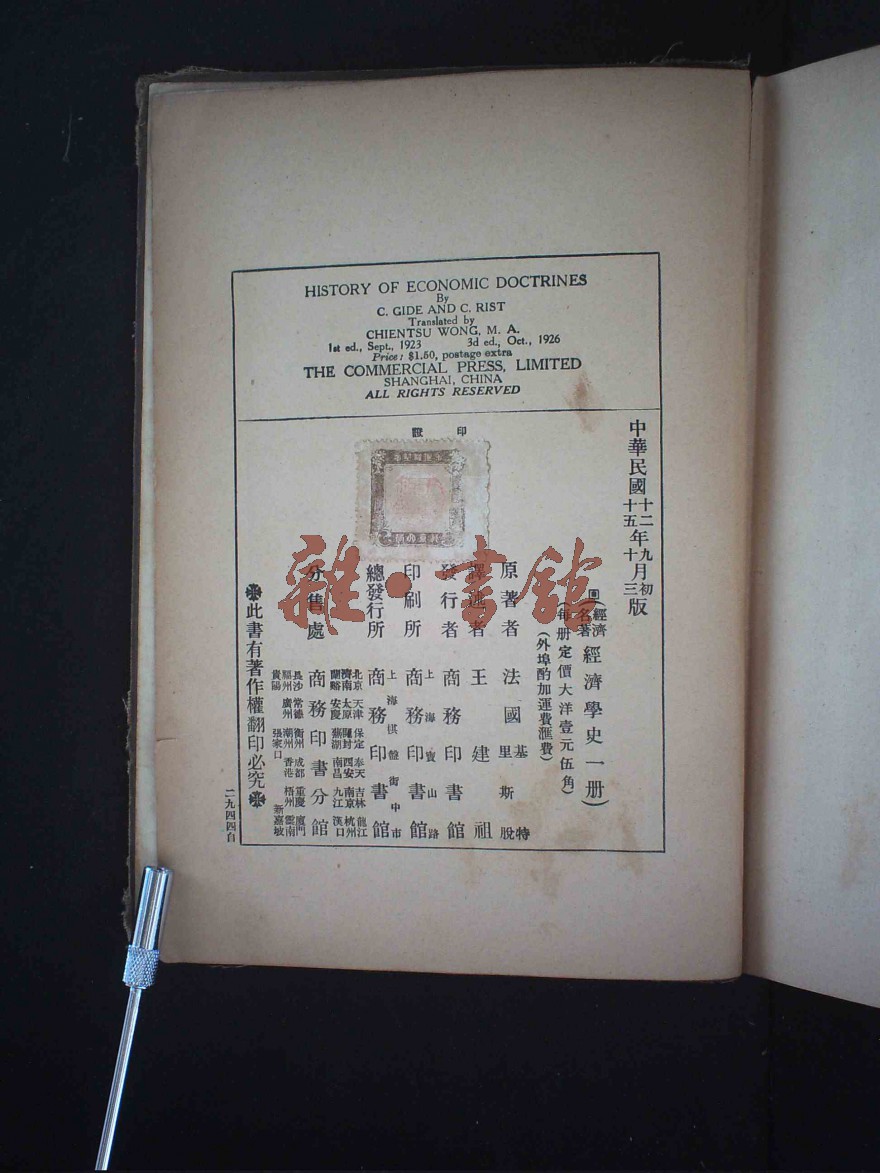 HISTORY OF ECONOMIC DOCTRINES
By
C. GIDE AND C. RIST
Translated by
CHIENTSU WONG, M. A.
1st ed., Sept., 1923 3d ed., Oct., 1926
Price: $1.50, postage extra
THE COMMERCIAL PRESS, LIMITED
SHANGHAI, CHINA
ALL RIGHTS RESERVED
中華民國十二年九月初版
十五年十月三版
經濟名著 經濟學史一册
每册定價大洋壹元伍角
外埠酌加運費匯費
原著者 法國 基特 里斯脫
譯述者 王建祖
發行者 商務印書館
印刷所 上海寶山路 商務印書館
總發行所 上海棋盤街中市 商務印書館
分售處 商務印書分館
北京 天津 保定 奉天 吉林 龍江
濟南 太原 開封 西安 南京 杭州
蘭谿 安慶 蕪湖 南昌 九江 漢口
長沙 常德 衡州 成都 重慶 廈門
福州 廣州 潮州 香港 梧州 雲南
貴陽 張家口 新嘉坡
此書有著作權翻印必究
二九四四自
雜·書館